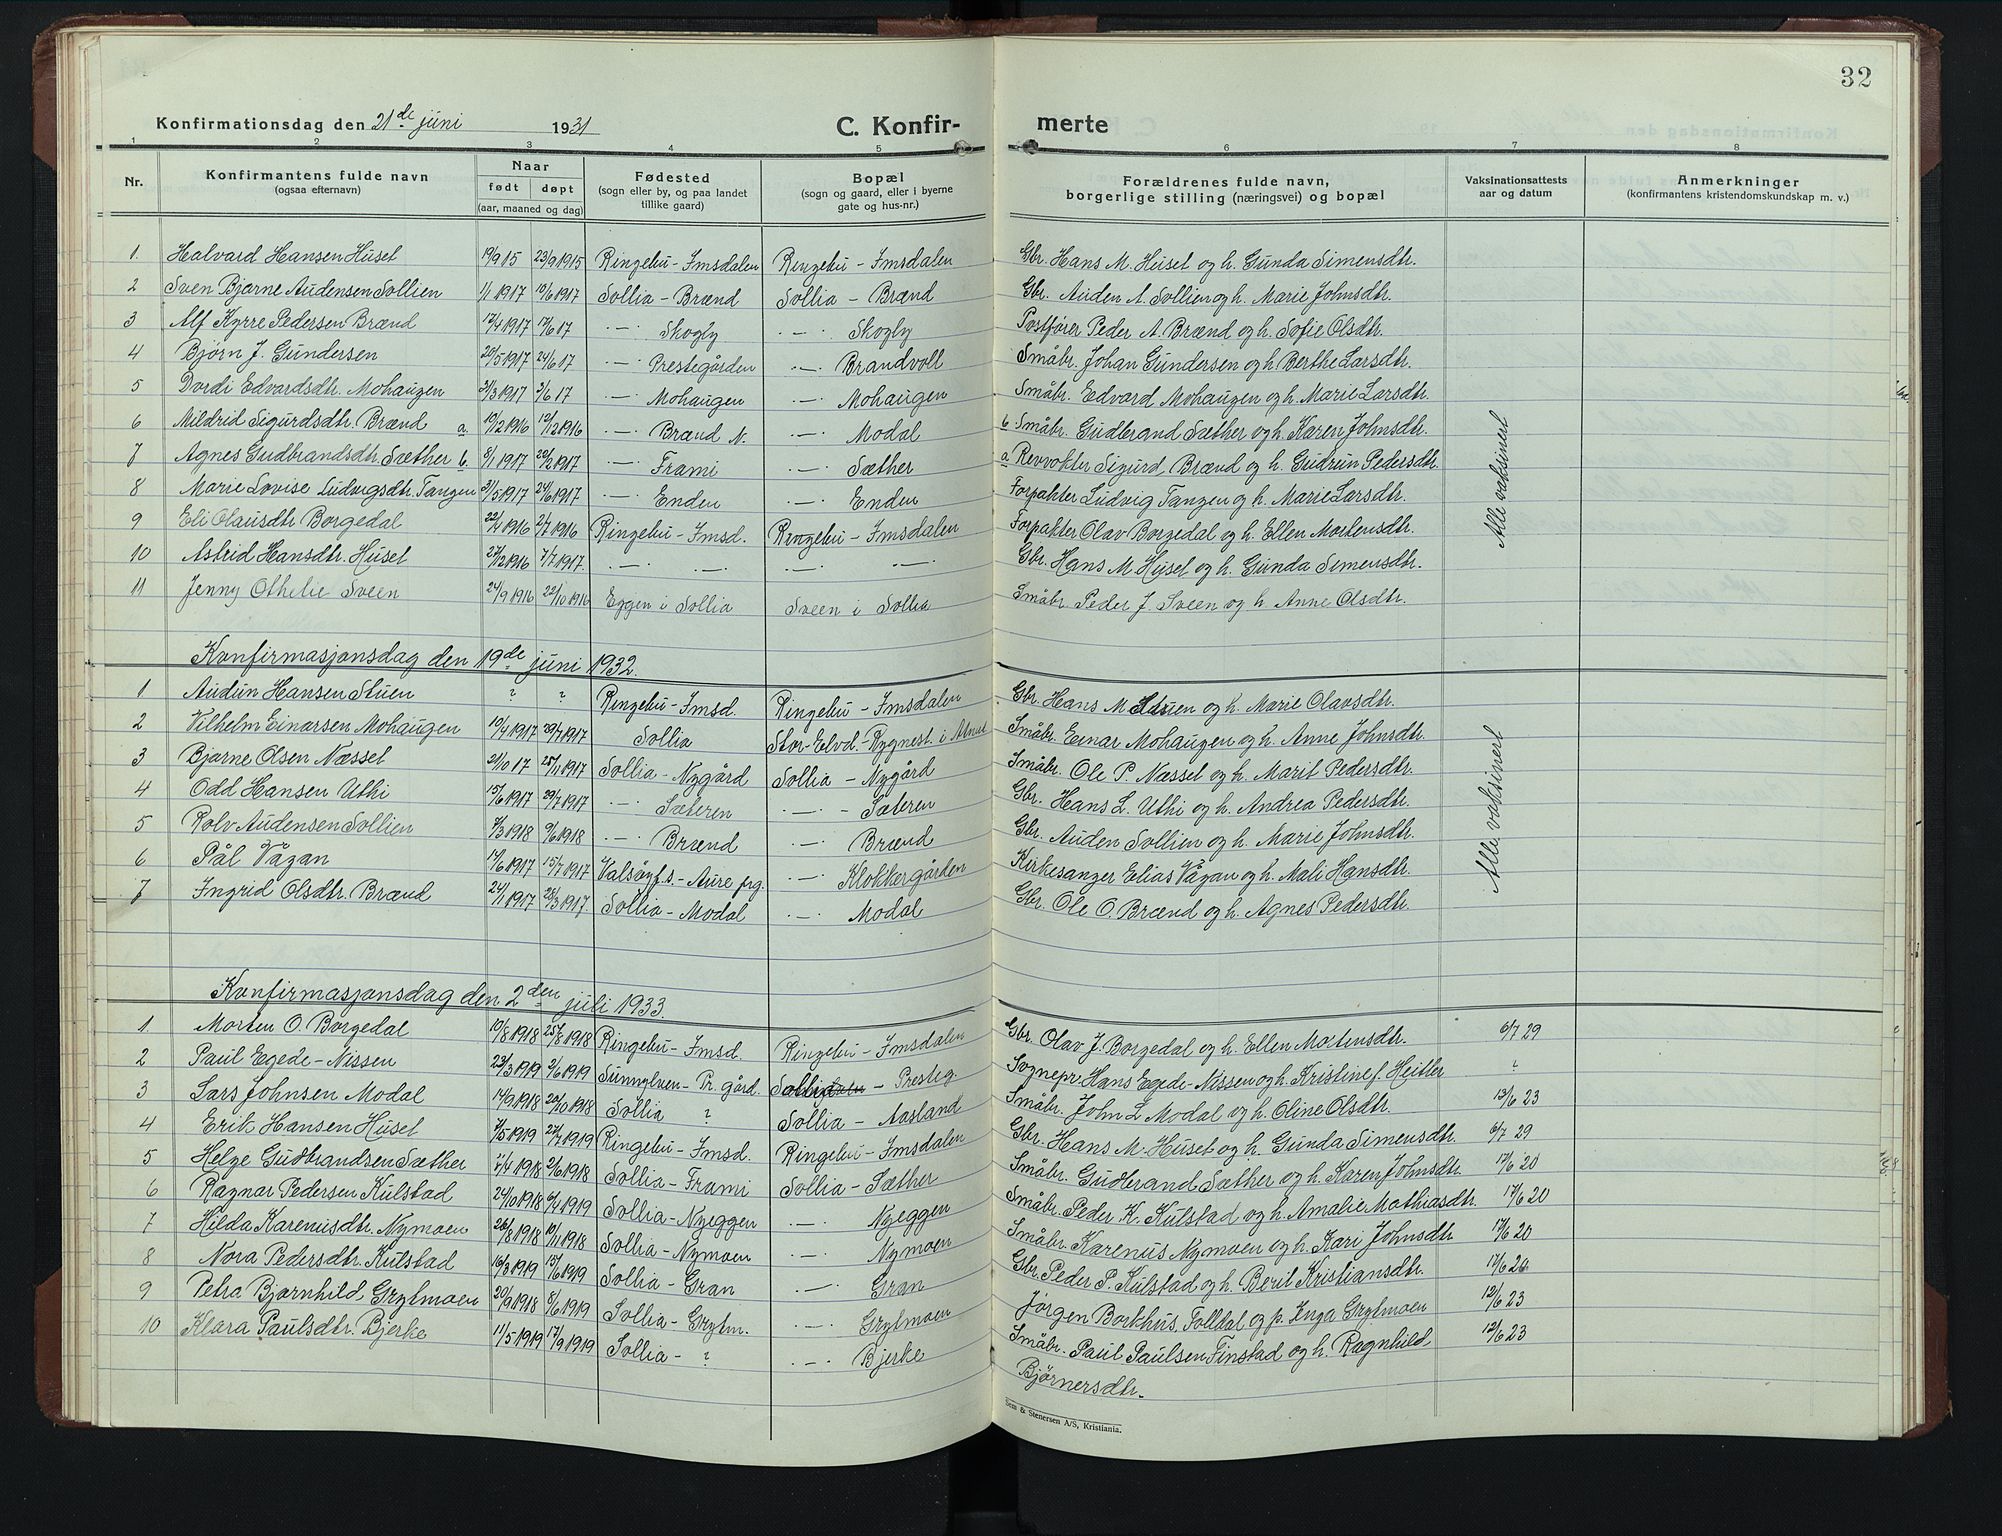 32
Konfirmationsdag den 21de juni 1931 C. Konfir- merte
1 2 3 4 5 6 7 8
Nr. Konfirmantens fulde navn (ogsaa efternavn) Naar født døpt (aar, maaned og dag) Fødested (sogn eller by, og paa landet tillike gaard) Bopæl (sogn og gaard, eller i byerne gate og hus-nr.) Forældrenes fulde navn, borgerlige stilling (næringsvei) og bopæl Vaksinationsattests aar og datum Anmerkninger (konfirmantens kristendomskundskap m. v.)
1 Halvard Hansen Huset 19/9 15 23/9 1915 Ringebu - Imsdalen Ringebu - Imsdalen Gbr. Hans M. Huset og h. Gunda Simensdtr.
2 Sven Bjarne Audensen Sollien 1/1 1917 10/6 1917 Sollia - Brænd Sollia - Brænd Gbr. Auden A. Sollien og h. Marie Johnsdtr.
3 Alf Kyrre Pedersen Brænd 12/4 1917 17/6 17 —"— Skogly —"— Skogly Postfører Peder A. Brænd og h. Sofie Olsdtr.
4 Bjørn J. Gundersen 20/5 1917 24/6 17 —"— Prestegården —"— Brandvoll Småbr. Johan Gundersen og h. Berthe Larsdtr.
5 Dordi Edvardsdtr. Mohaugen 31/3 1917 3/6 17 —"— Mohaugen —"— Mohaugen Småbr. Edvard Mohaugen og h. Marie Larsdtr.
6 Mildrid Sigurdsdtr. Brænd a. 10/12 1916 12/12 1916 —"— Brænd N. —"— Modal b Småbr. Gudbrand Sæther og h. Karen Johnsdtr.
7 Agnes Gudbrandsdtr. Sæther b. 8/1 1917 20/2 1917 —"— Frami —"— Sæther a Revvokter Sigurd Brænd og h. Gudrun Pedersdtr.
8 Marie Lovise Ludvigsdtr. Tangen 31/5 1917 24/6 1917 —"— Enden —"— Enden Forpakter Ludvig Tangen og h. Marie Larsdtr.
9 Eli Olausdtr Borgedal 22/4 1916 2/7 1916 Ringebu - Imsd. Ringebu - Imsdalen Forpakter Olav Borgedal og h. Ellen Mortensdtr.
10 Astrid Hansdtr. Huset 27/12 1916 7/7 1917 —"— —"— —"— —"— Gbr. Hans M. Huset og h. Gunda Simensdtr.
11 Jenny Othelie Sveen 24/9 1916 22/10 1916 Eggen i Sollia Sveen i Sollia Småbr. Peder J. Sveen og h. Anne Olsdtr.
Alle vaksinert
Konfirmasjonsdag den 19de juni 1932.
1 Audun Hansen Stuen ? ? Ringebu - Imsd. Ringebu - Imsdalen Gbr. Hans M. Stuen og h. Marie Olavsdtr.
2 Vilhelm Einarsen Mohaugen 10/4 1917 29/7 1917 Sollia Stor-Elvd. - Rygnest. i Atnas Småbr. Einar Mohaugen og h. Anne Johnsdtr.
3 Bjarne Olsen Næsset 21/10 17 25/11 1917 Sollia - Nygård Sollia - Nygård Småbr. Ole P. Næsset og h. Marit Pedersdtr.
4 Odd Hansen Uthi 15/6 1917 29/7 1917 —"— Sæteren —"— Sæteren Gbr. Hans L. Uthi og h. Andrea Pedersdtr.
5 Rolv Audensen Sollien 7/3 1918 9/6 1918 —"— Brænd —"— Brænd Gbr. Auden Sollien og h. Marie Johnsdtr.
6 Pål Vågan 14/6 1917 15/7 1917 Valsøyf.s. - Aure prg. —"— Klokkergården Kirkesanger Elias Vågan og h. Mali Hansdtr.
7 Ingrid Olsdtr. Brænd 24/1 1917 28/3 1917 Sollia - Modal —"— Modal Gbr. Ole O. Brænd og h. Agnes Pedersdtr.
Alle vaksinert
Konfirmasjonsdag den 2den juli 1933.
1 Morten O. Borgedal 10/8 1918 25/8 1918 Ringebu - Imsd. Ringebu - Imsdalen Gbr. Olav J. Borgedal og h. Ellen Mortensdtr. 6/7 29
2 Paul Egede-Nissen 23/3 1919 2/6 1919 Sunnylven - Pr. gård. Sollia - Presteg. Sognepr. Hans Egede-Nissen og h. Kristine f. Heitler ?
3 Lars Johnsen Modal 14/9 1918 20/10 1918 Sollia ? Sollia - Aasland Småbr. John L. Modal og h. Oline Olsdtr. 13/6 23
4 Erik Hansen Huset 7/5 1919 27/7 1919 Ringebu - Imsd. Ringebu - Imsdalen Gbr. Hans M. Huset og h. Gunda Simensdtr. 6/7 29
5 Helge Gudbrandsen Sæther 7/4 1918 2/6 1918 Sollia - Frami Sollia - Sæther Småbr. Gudbrand Sæther og h. Karen Johnsdtr. 17/6 20
6 Ragnar Pedersen Kulstad 24/10 1918 6/4 1919 Sollia - Nyeggen —"— Nyeggen Småbr. Peder K. Kulstad og h. Amalie Mathiasdtr. 17/6 20
7 Hilda Karenusdtr. Nymoen 26/8 1918 10/11 1918 Sollia - Nymoen —"— Nymoen Småbr. Karenus Nymoen og h. Kari Johnsdtr 17/6 20
8 Nora Pedersdtr. Kulstad 16/3 1919 15/6 1919 Sollia - Gran —"— Gran Gbr. Peder P. Kulstad og h. Berit Kristiansdtr. 17/6 20
9 Petra Bjørnhild Grytmoen 20/9 1918 8/6 1919 Sollia - Grytm. —"— Grytmoen Jørgen Borkhus, Folldal og p. Inga Grytmoen 12/6 23
10 Klara Paulsdtr. Bjerke 11/5 1919 17/9 1919 Sollia - ? —"— Bjerke Småbr. Paul Paulsen Finstad og h. Ragnhild 12/6 23
Bjørnersdtr.
Sem & Stenersen A/S, Kristiania.